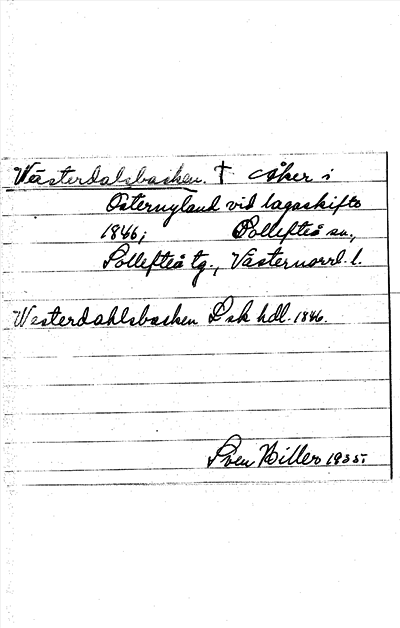 Västerdalsbacken. † Åker i
Östernyland vid lagaskifte
1846; Sollefteå sn.,
Sollefteå tg., Västernorrl. l.
Westerdahlsbacken Lsk hdl. 1846.
Sven Willer 1935.